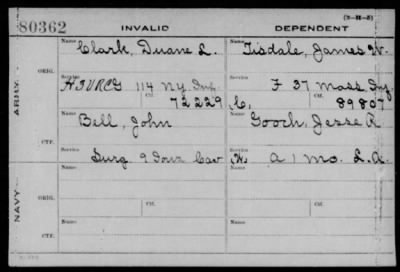 (3-21-5)
80362 INVALID DEPENDENT
Name Clark, Duane L. Name Tisdale, James W.
ORIG.
Service H 3 VRC G 114 Ny Inf. Service F 37 Mass Inf.
Ctf. 72229 Ctf. 89807
ARMY.
Name Bell, John Name Gooch, Jesse R
CTF.
Surg 9 Iowa Cav A 1 Mo. L. A.
Name Name
ORIG.
Service Ctf. Service Ctf.
NAVY.
Name Name
CTF.